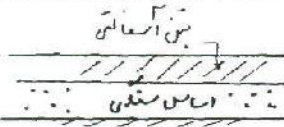 بتن آسفالتی
اساس سنگی